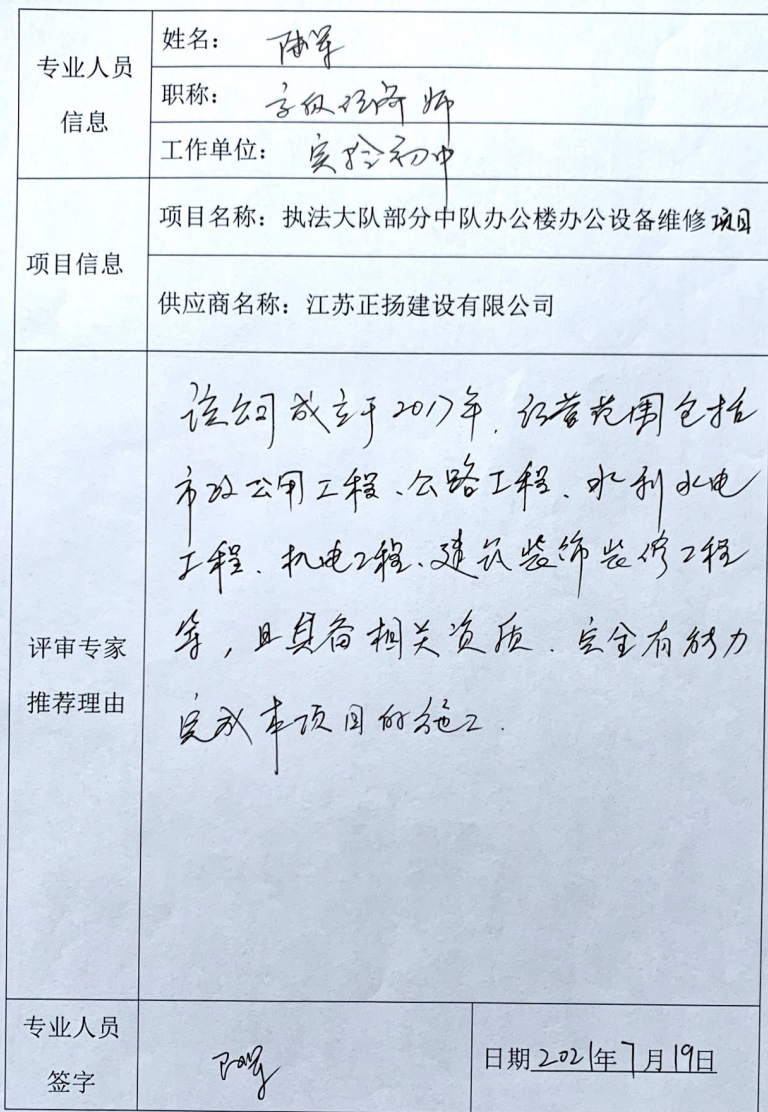 专业人员
信息
姓名：陆军
职称：高级经济师
工作单位：实验初中
项目信息
项目名称：执法大队部分中队办公楼办公设备维修项目
供应商名称：江苏正扬建设有限公司
评审专家
推荐理由
该公司成立于2017年，经营范围包括
市政公用工程、公路工程、水利水电
工程、机电工程、建筑装饰装修工程
等，且具备相关资质．完全有能力
完成本项目的施工．
专业人员
签字
陆军
日期2021年7月19日